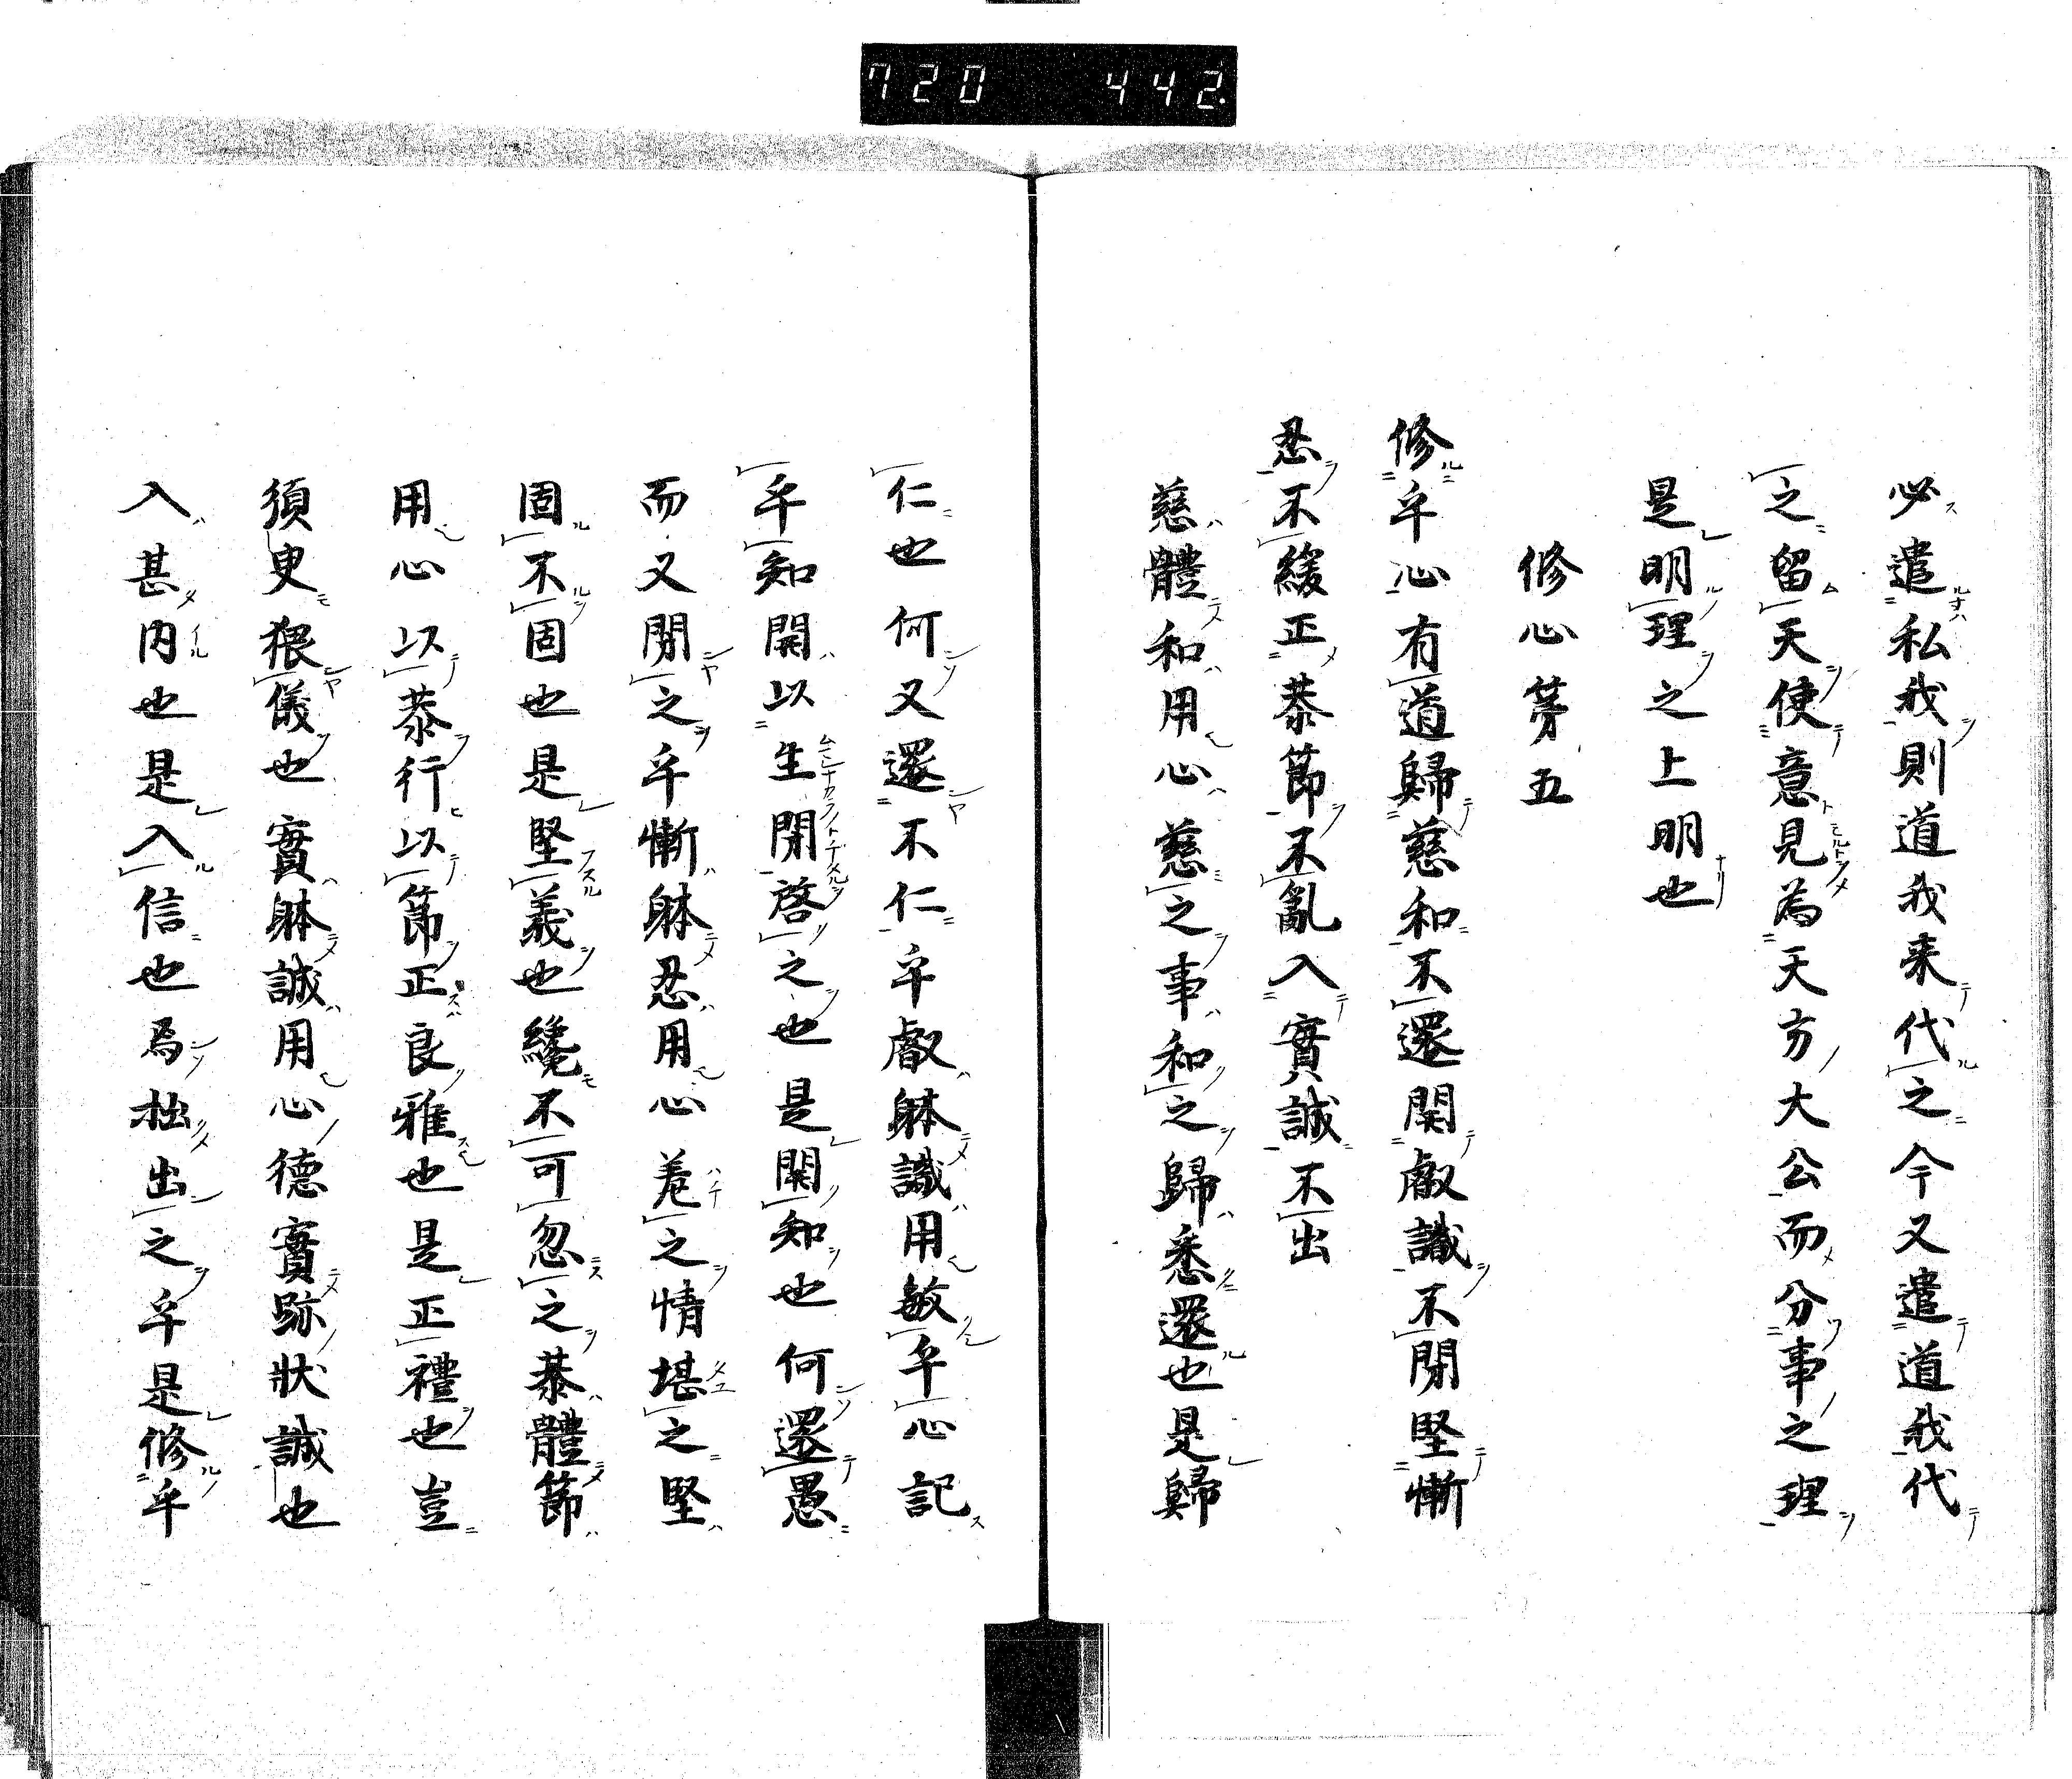 720 442
必遣私我則道我来代之今又遣道我代
之留天使意見為天方大公而分事之理
是明理之上明也
修心第五
修乎心有道歸慈和不還開叡識不閉堅慚
忍不緩正恭節不亂入實誠不出
慈體和用心慈之事和之歸悉還也是歸
仁也何又還不仁乎叡躰識用敏乎心記
乎知開以生閉啓之也是開知也何還愚
而又閉之乎慚躰忍用心羞之情堪之堅
固不固也是堅義也纔不可忽之恭體節
用心以恭行以節正良雅也是正禮也豈
須臾猥儀也實躰誠用心德實跡狀誠也
入甚内也是入信也為拙出之乎是修乎